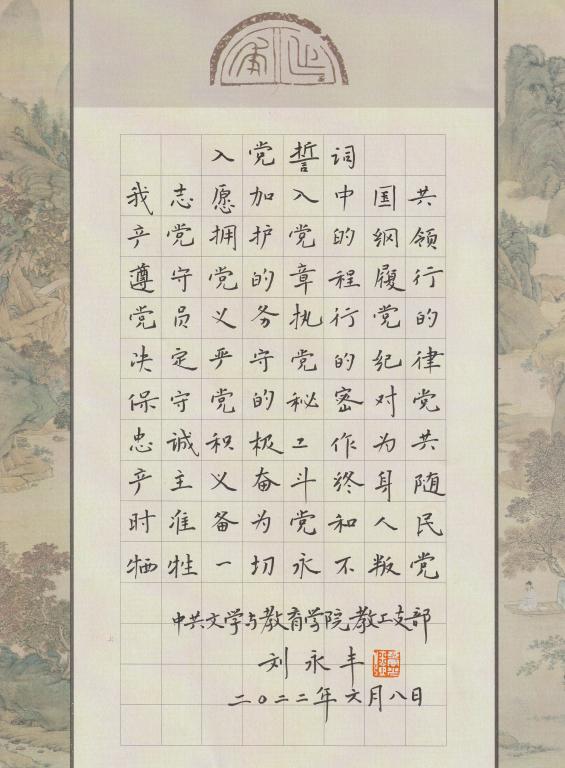 入党誓词
我志愿加入中国共
产党拥护党的纲领
遵守党的章程履行
党员义务执行党的
决定严守党的纪律
保守党的秘密对党
忠诚积极工作为共
产主义奋斗终身随
时准备为党和人民
牺牲一切永不叛党
中共文学与教育学院教工支部
刘永丰
二〇二二年六月八日